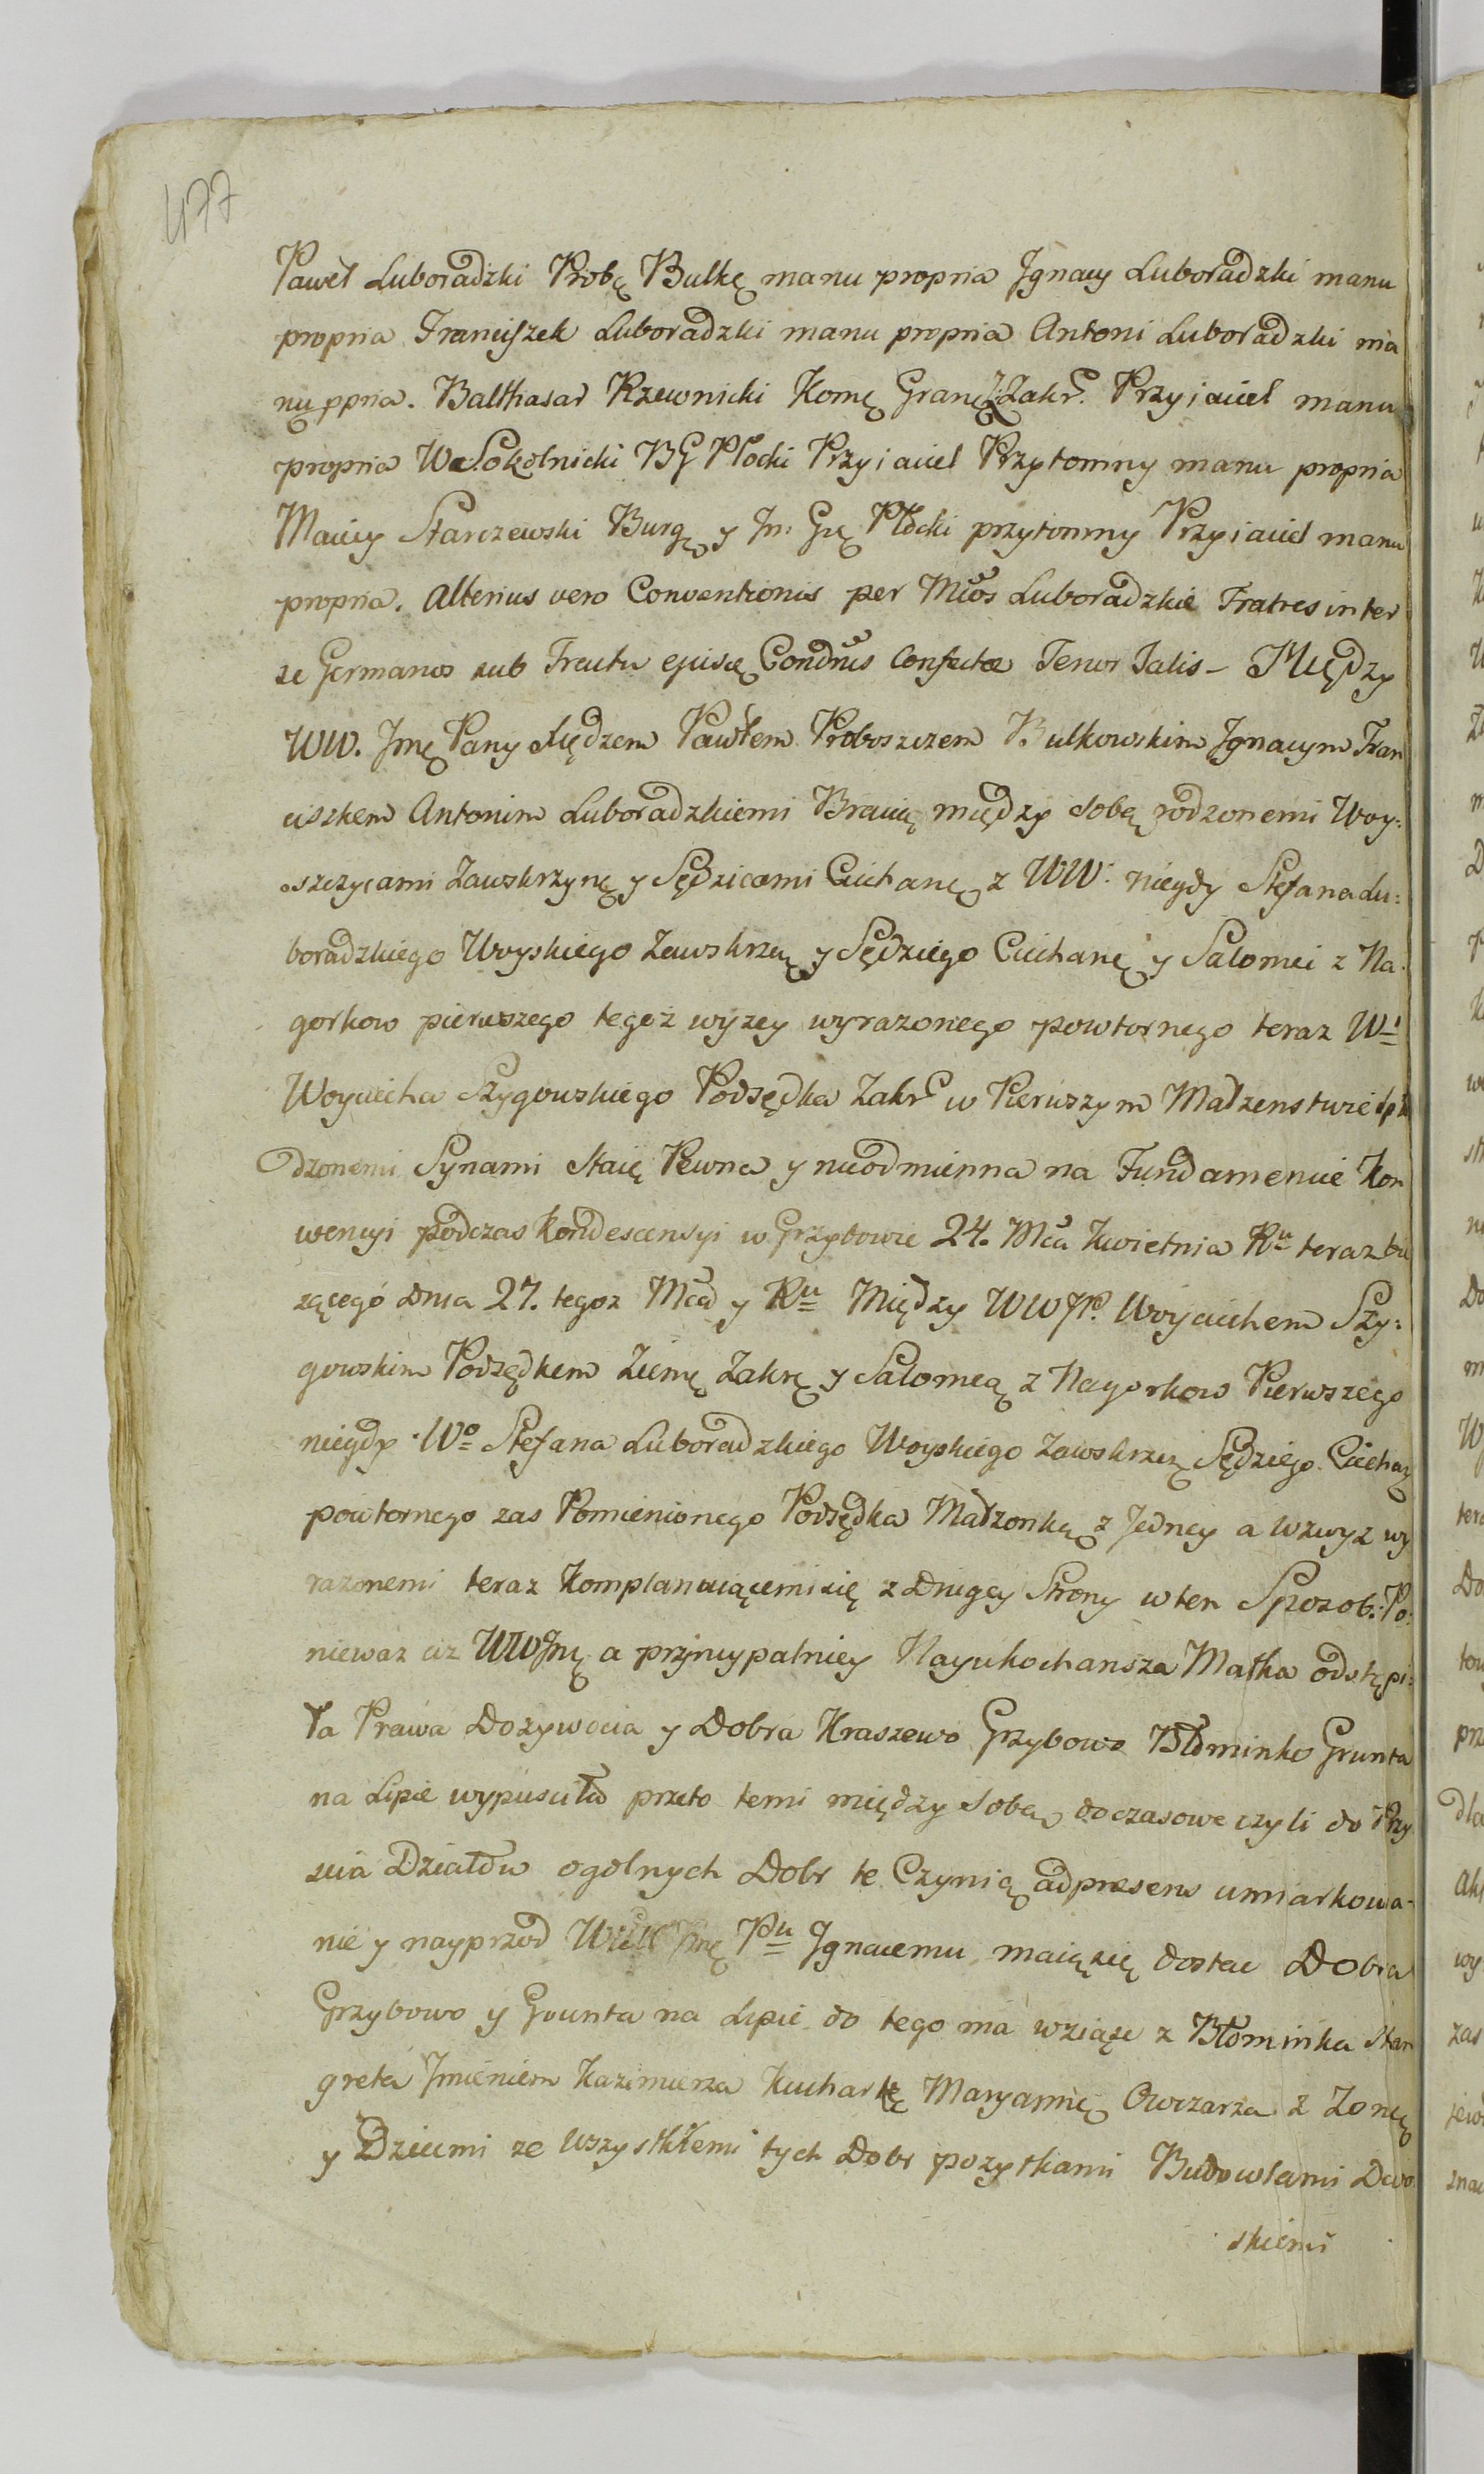 477
Paweł Luboradzki Probę Bulkę manu propria Jgnacy Luboradzki manu
propria Franciszek Luboradzki manu propria Antoni Luboradzki ma
nu ppria. Balthasar Rzewnicki Komę Granę Zakr. Przyiaciel manu
propria W Sokolnicki BG Płocki Przyiaciel Przytomny manu propria
Maciey Starczewski Burgę y Jn: Grę Płocki przytomny Przyiaciel manu
propria. Alterius vero Conventionis per Mcos Luboradzkie Fratres inter
se Germanos sub Tractu ejusę Condnis Confectæ Tenor Talis – Między
WW. Jmę Pany Xiędzem Pawłem Proboszczem Bulkowskim Jgnacym Fran
ciszkem Antonim Luboradzkiemi Bracią między sobą rodzonemi Woy:
szczycami Zawskrzynę y Sędzicami Ciechanę z WW: niegdy Stefana Lu:
boradzkiego Woyskiego Zawskrzę y Sędziego Ciechanę y Salomei z Na:
gorkow pierwszego tegoż wyżey wyrazonego powtornego teraz W
Woyciecha Szygowskiego Podsędka Zakr w Pierwszym Małzenstwie spło
dzonemi Synami Staię Pewna y nieodmienna na Fundamencie Kon
wencyi podczas Kondescensyi w Grzybowie 24. Mca Kwietnia Ru teraz bie
zącego Dnia 27. tegoz Mca y Ru Między WWJP. Woyciechem Szy:
gowskim Podsędkem Ziemę Zakrę y Salomeą z Nagorkow Pierwszego
niegdy Wo Stefana Luboradzkiego Woyskiego Zawskrzę Sędziego Ciechaę
powtornego zas Pomienionego Podsędka Małzonką z Jedney a wzwyz wy
razonemi teraz Komplanuiącemi się z Drugey Strony w ten Sposob: Po
niewaz ciz WWJmę a pryncypalniey Nayukochansza Matka odstąpi:
ła Prawa Dozywocia y Dobra Kraszewo Grzybowo Błominko Grunta
na Lipie wypusciła przeto temi między sobą doczasowe czyli do Przy
scia Działow ogolnych Dobr te Czynią ad præsens umiarkowa-
nie y nayprzod Jmę Pu Jgnacemu maią się dostac Dobra
Grzybowo y Grunta na Lipie do tego ma wziąsc z Błominka Stan
greta Jmieniem Kazimierza Kucharkę Maryannę Owczarza z Zoną
y Dziecmi ze wszystkiemi tych Dobr pozytkami Budowlami Dwo
skiemi